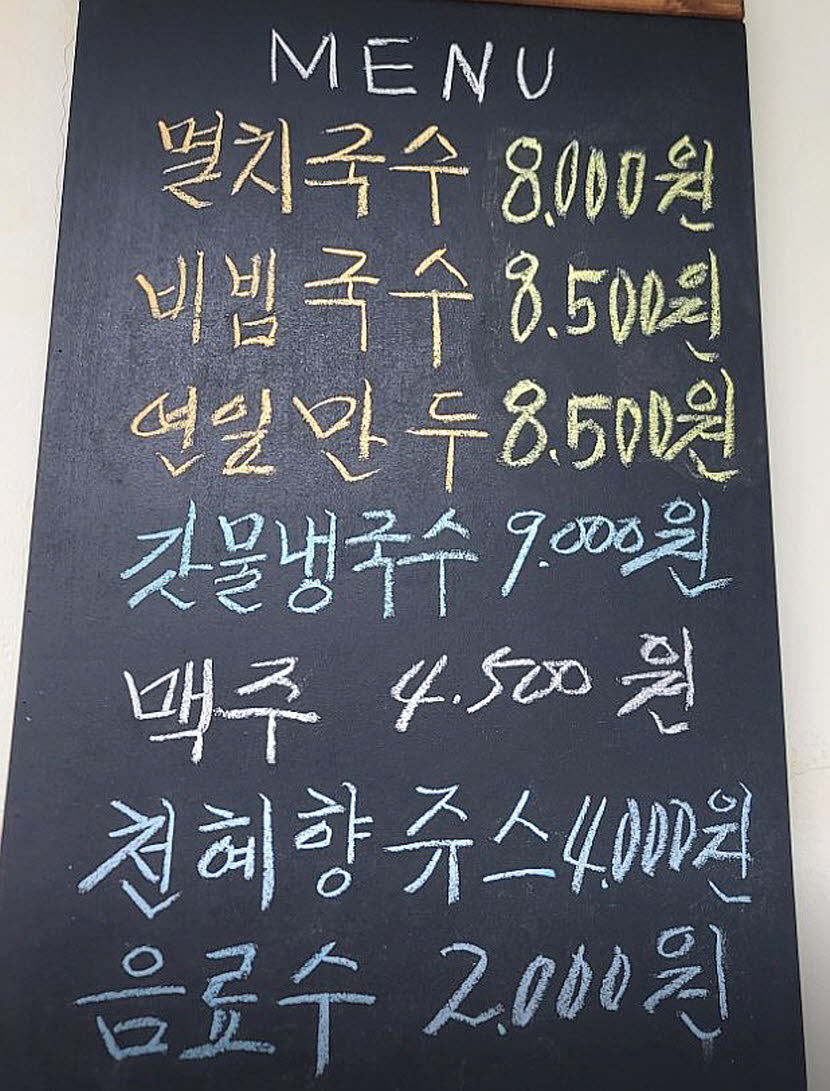 MENU
멸치국수 8.000원
비빔국수 8.500원
연일만두 8.500원
갓물냉국수 9.000원
맥주 4.500원
천혜향쥬스 4.000원
음료수 2.000원